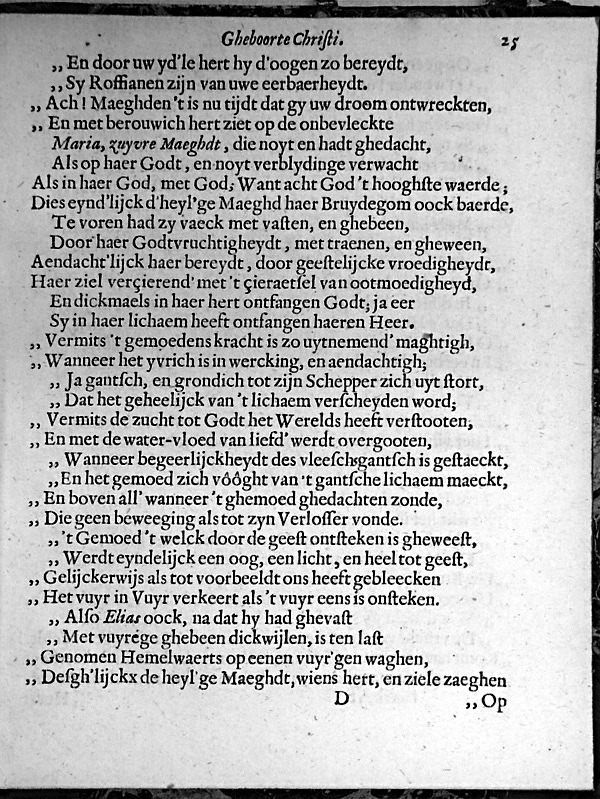 Gheboorte Chriſti. 25
,, En door uw yd'le hert hy d'oogen zo bereydt,
,, Sy Roffianen zijn van uwe eerbaerheydt.
,, Ach! Maeghden 't is nu tijdt dat gy uw droom ontwreckten,
,, En met berouwich hert ziet op de onbevleckte
Maria, zuyvre Maeghdt, die noyt en hadt ghedacht,
Als op haer Godt, en noyt verblydinge verwacht
Als in haer God, met God; Want acht God 't hooghſte waerde;
Dies eynd'lijck d'heyl'ge Maeghd haer Bruydegom oock baerde,
Te voren had zy vaeck met vaſten, en ghebeen,
Door haer Godtvruchtigheydt, met traenen, en gheween,
Aendacht'lijck haer bereydt, door geeſtelijcke vroedigheydt,
Haer ziel verçierend' met 't çieraetſel van ootmoedigheyd,
En dickmaels in haer hert ontfangen Godt; ja eer
Sy in haer lichaem heeft ontfangen haeren Heer.
,, Vermits 't gemoedens kracht is zo uytnemend' maghtigh,
,, Wanneer het yvrich is in wercking, en aendachtigh;
,, Ja gantſch, en grondich tot zijn Schepper zich uyt ſtort,
,, Dat het geheelijck van 't lichaem verſcheyden word;
,, Vermits de zucht tot Godt het Werelds heeft verſtooten,
,, En met de water-vloed van liefd' werdt overgooten,
,, Wanneer begeerlijckheydt des vleeſchs gantſch is geſtaeckt,
,, En het gemoed zich vôôght van 't gantſche lichaem maeckt,
,, En boven all' wanneer 't ghemoed ghedachten zonde,
,, Die geen beweeging als tot zyn Verloſſer vonde.
,, 't Gemoed 't welck door de geeſt ontſteken is gheweeſt,
,, Werdt eyndelijck een oog, een licht, en heel tot geeſt,
,, Gelijckerwijs als tot voorbeeldt ons heeft gebleecken
,, Het vuyr in Vuyr verkeert als 't vuyr eens is onſteken.
,, Alſo Elias oock, na dat hy had ghevaſt
,, Met vuyrége ghebeen dickwijlen, is ten laſt
,, Genomen Hemelwaerts op eenen vuyr'gen waghen,
,, Deſgh'lijckx de heyl'ge Maeghdt, wiens hert, en ziele zaeghen
D ,, Op